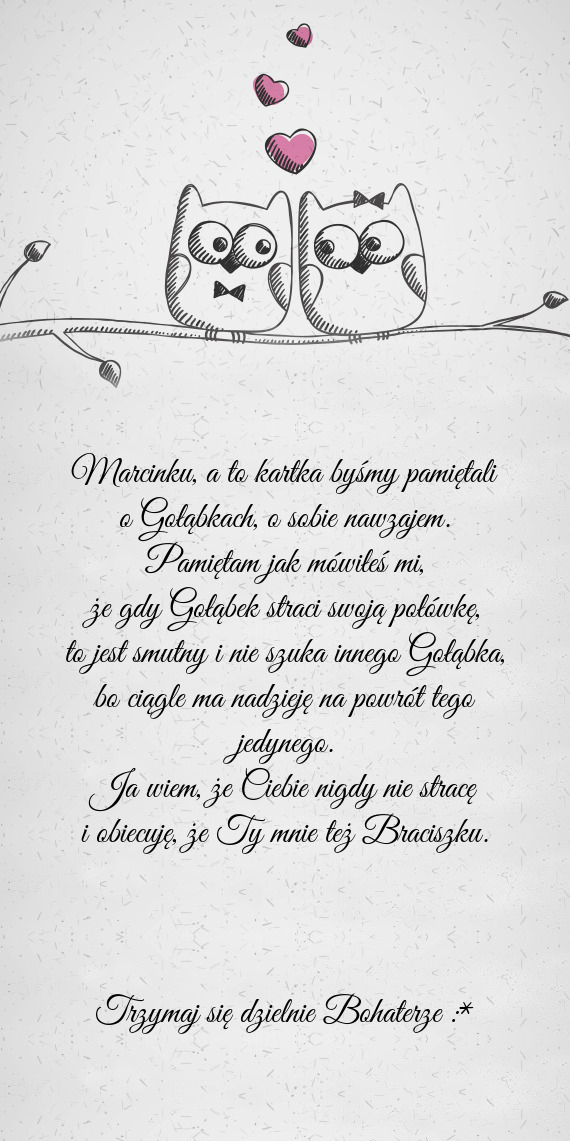 Marcinku, a to kartka byśmy pamiętali
o Gołąbkach, o sobie nawzajem.
Pamiętam jak mówiłeś mi,
że gdy Gołąbek straci swoją połówkę,
to jest smutny i nie szuka innego Gołąbka,
bo ciągle ma nadzieję na powrót tego
jedynego.
Ja wiem, że Ciebie nigdy nie stracę
i obiecuję, że Ty mnie też Braciszku.
Trzymaj się dzielnie Bohaterze :*